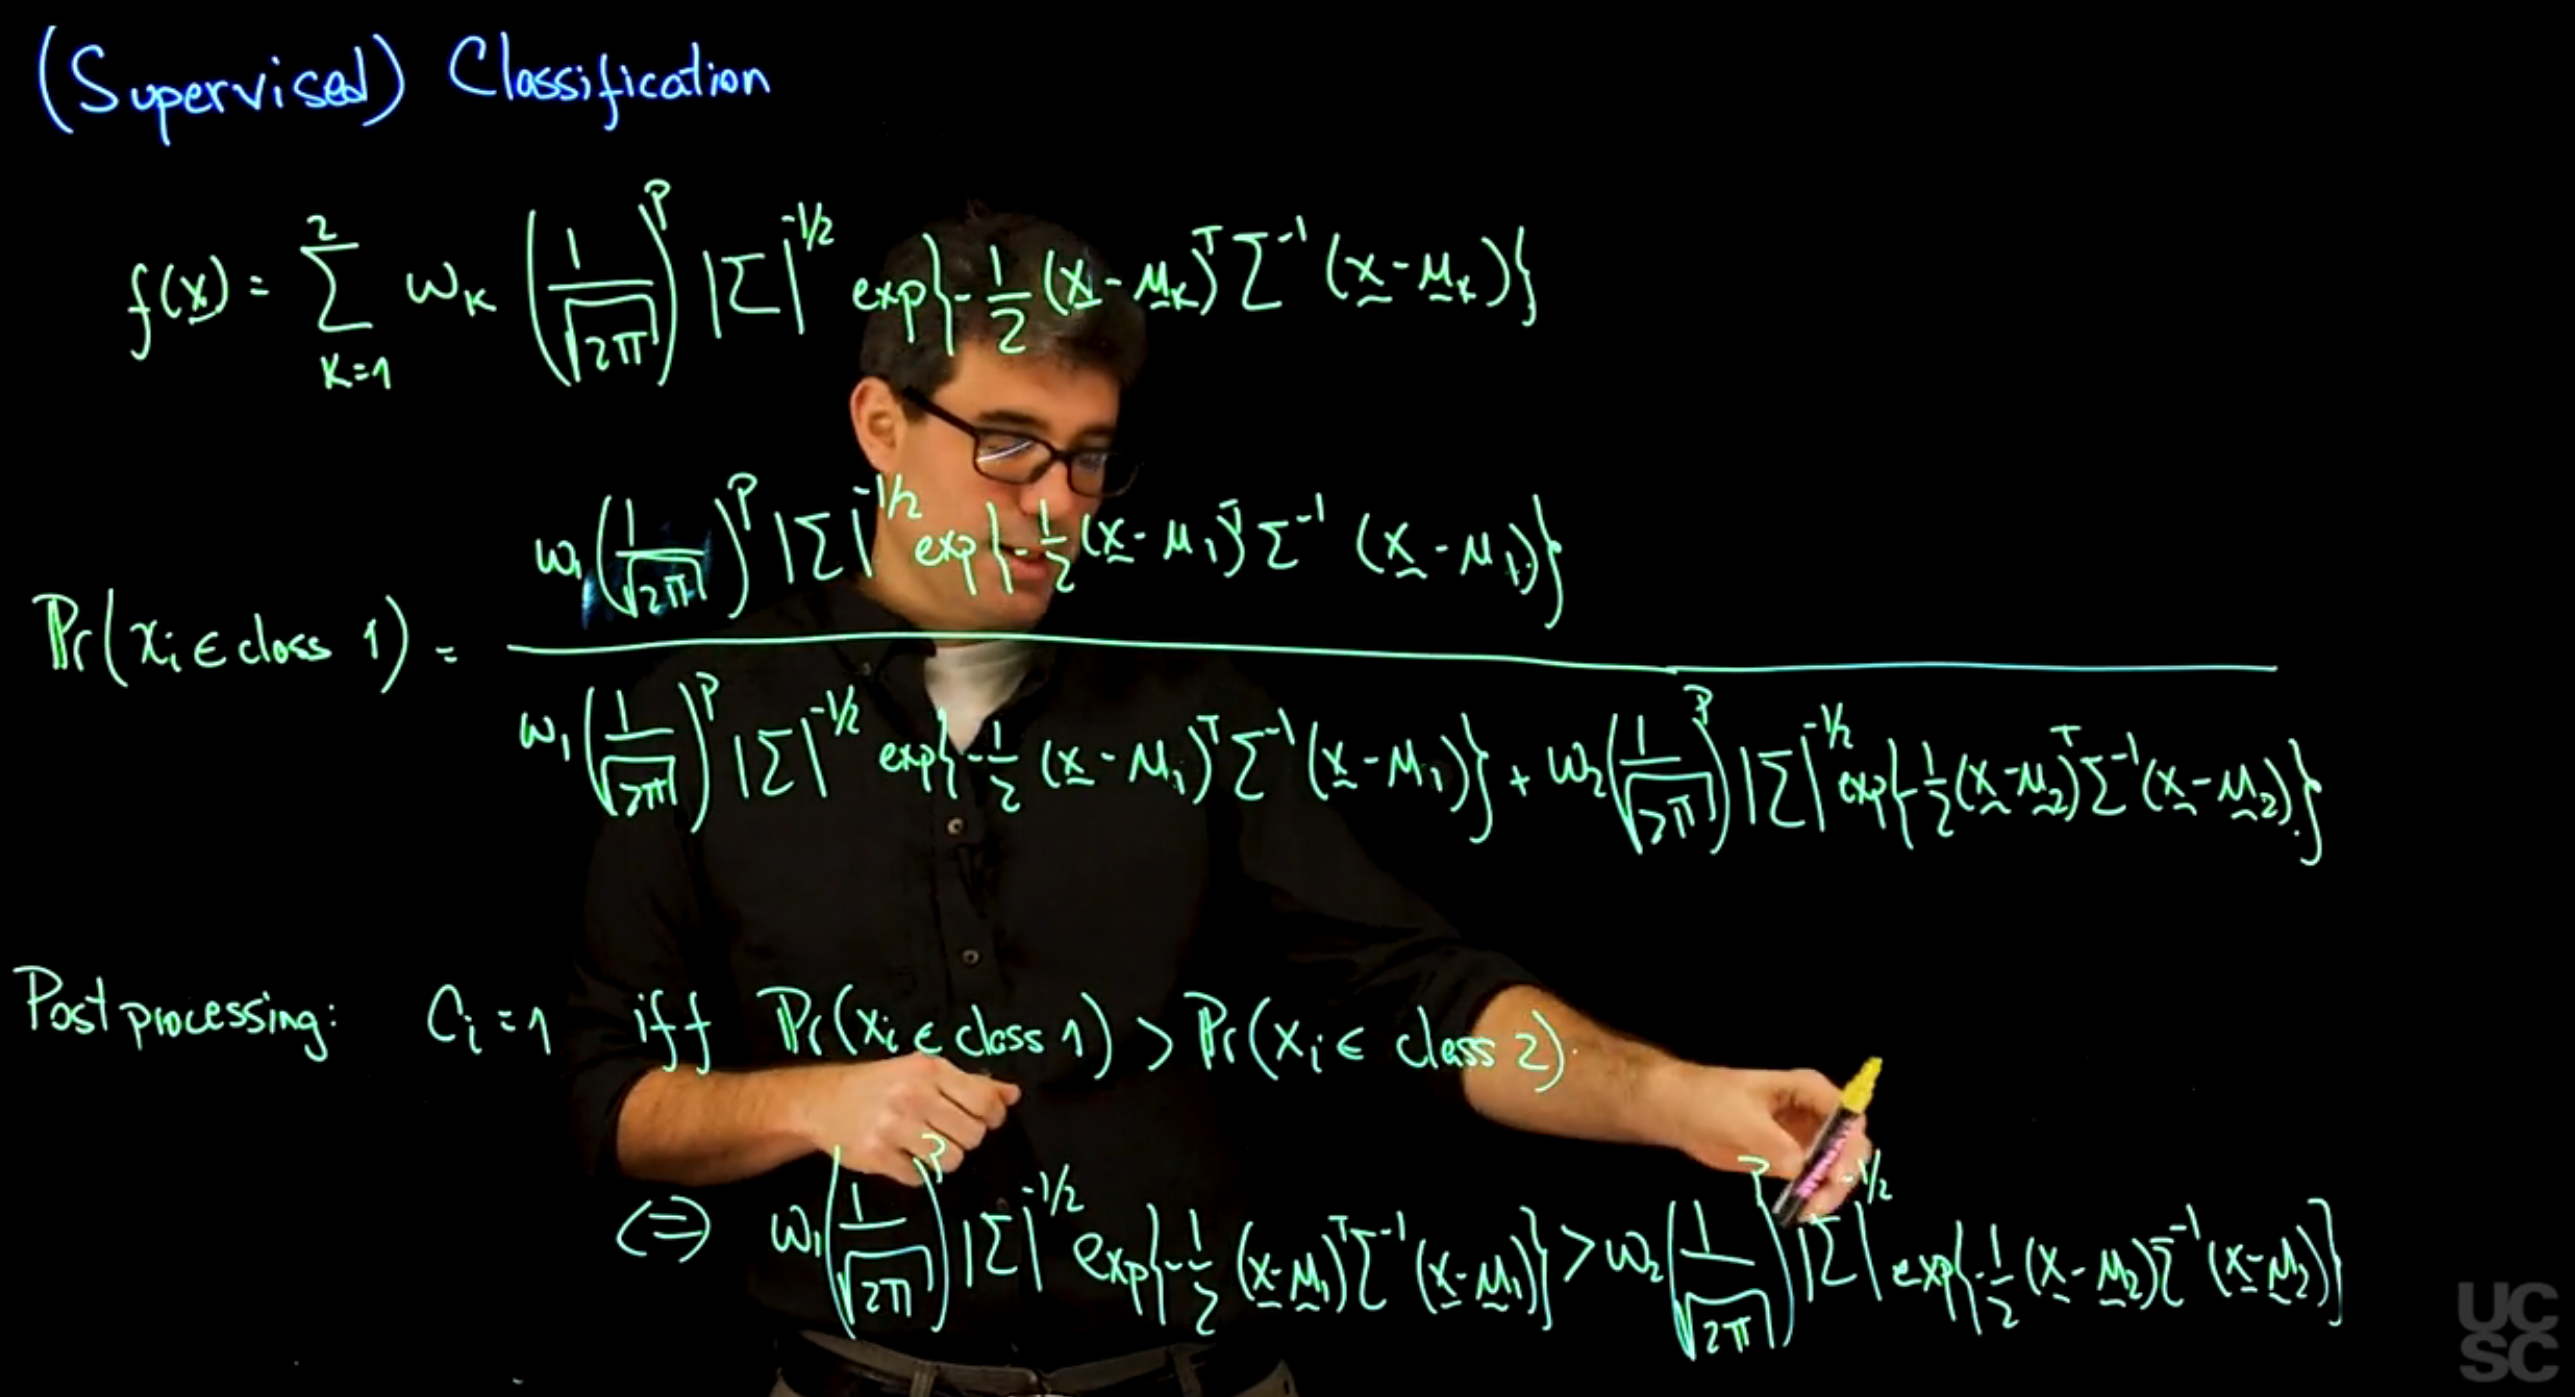 (Supervised) Classification
f(x) = Σ_{K=1}^{2} ω_K (1/√2π)^P |Σ|^{-1/2} exp{-1/2 (x - μ_K)^T Σ^{-1} (x - μ_K)}
ω_1 (1/√2π)^P |Σ|^{-1/2} exp{-1/2 (x - μ_1)^T Σ^{-1} (x - μ_1)}
Pr(x_i ∈ class 1) =
ω_1 (1/√2π)^P |Σ|^{-1/2} exp{-1/2 (x - μ_1)^T Σ^{-1} (x - μ_1)} + ω_2 (1/√2π)^P |Σ|^{-1/2} exp{-1/2 (x - μ_2)^T Σ^{-1} (x - μ_2)}
Postprocessing: C_i = 1 iff Pr(x_i ∈ class 1) > Pr(x_i ∈ class 2).
⇔ ω_1 (1/√2π)^P |Σ|^{-1/2} exp{-1/2 (x - μ_1)^T Σ^{-1} (x - μ_1)} > ω_2 (1/√2π)^P |Σ|^{-1/2} exp{-1/2 (x - μ_2) Σ^{-1} (x - μ_2)}
UC
SC